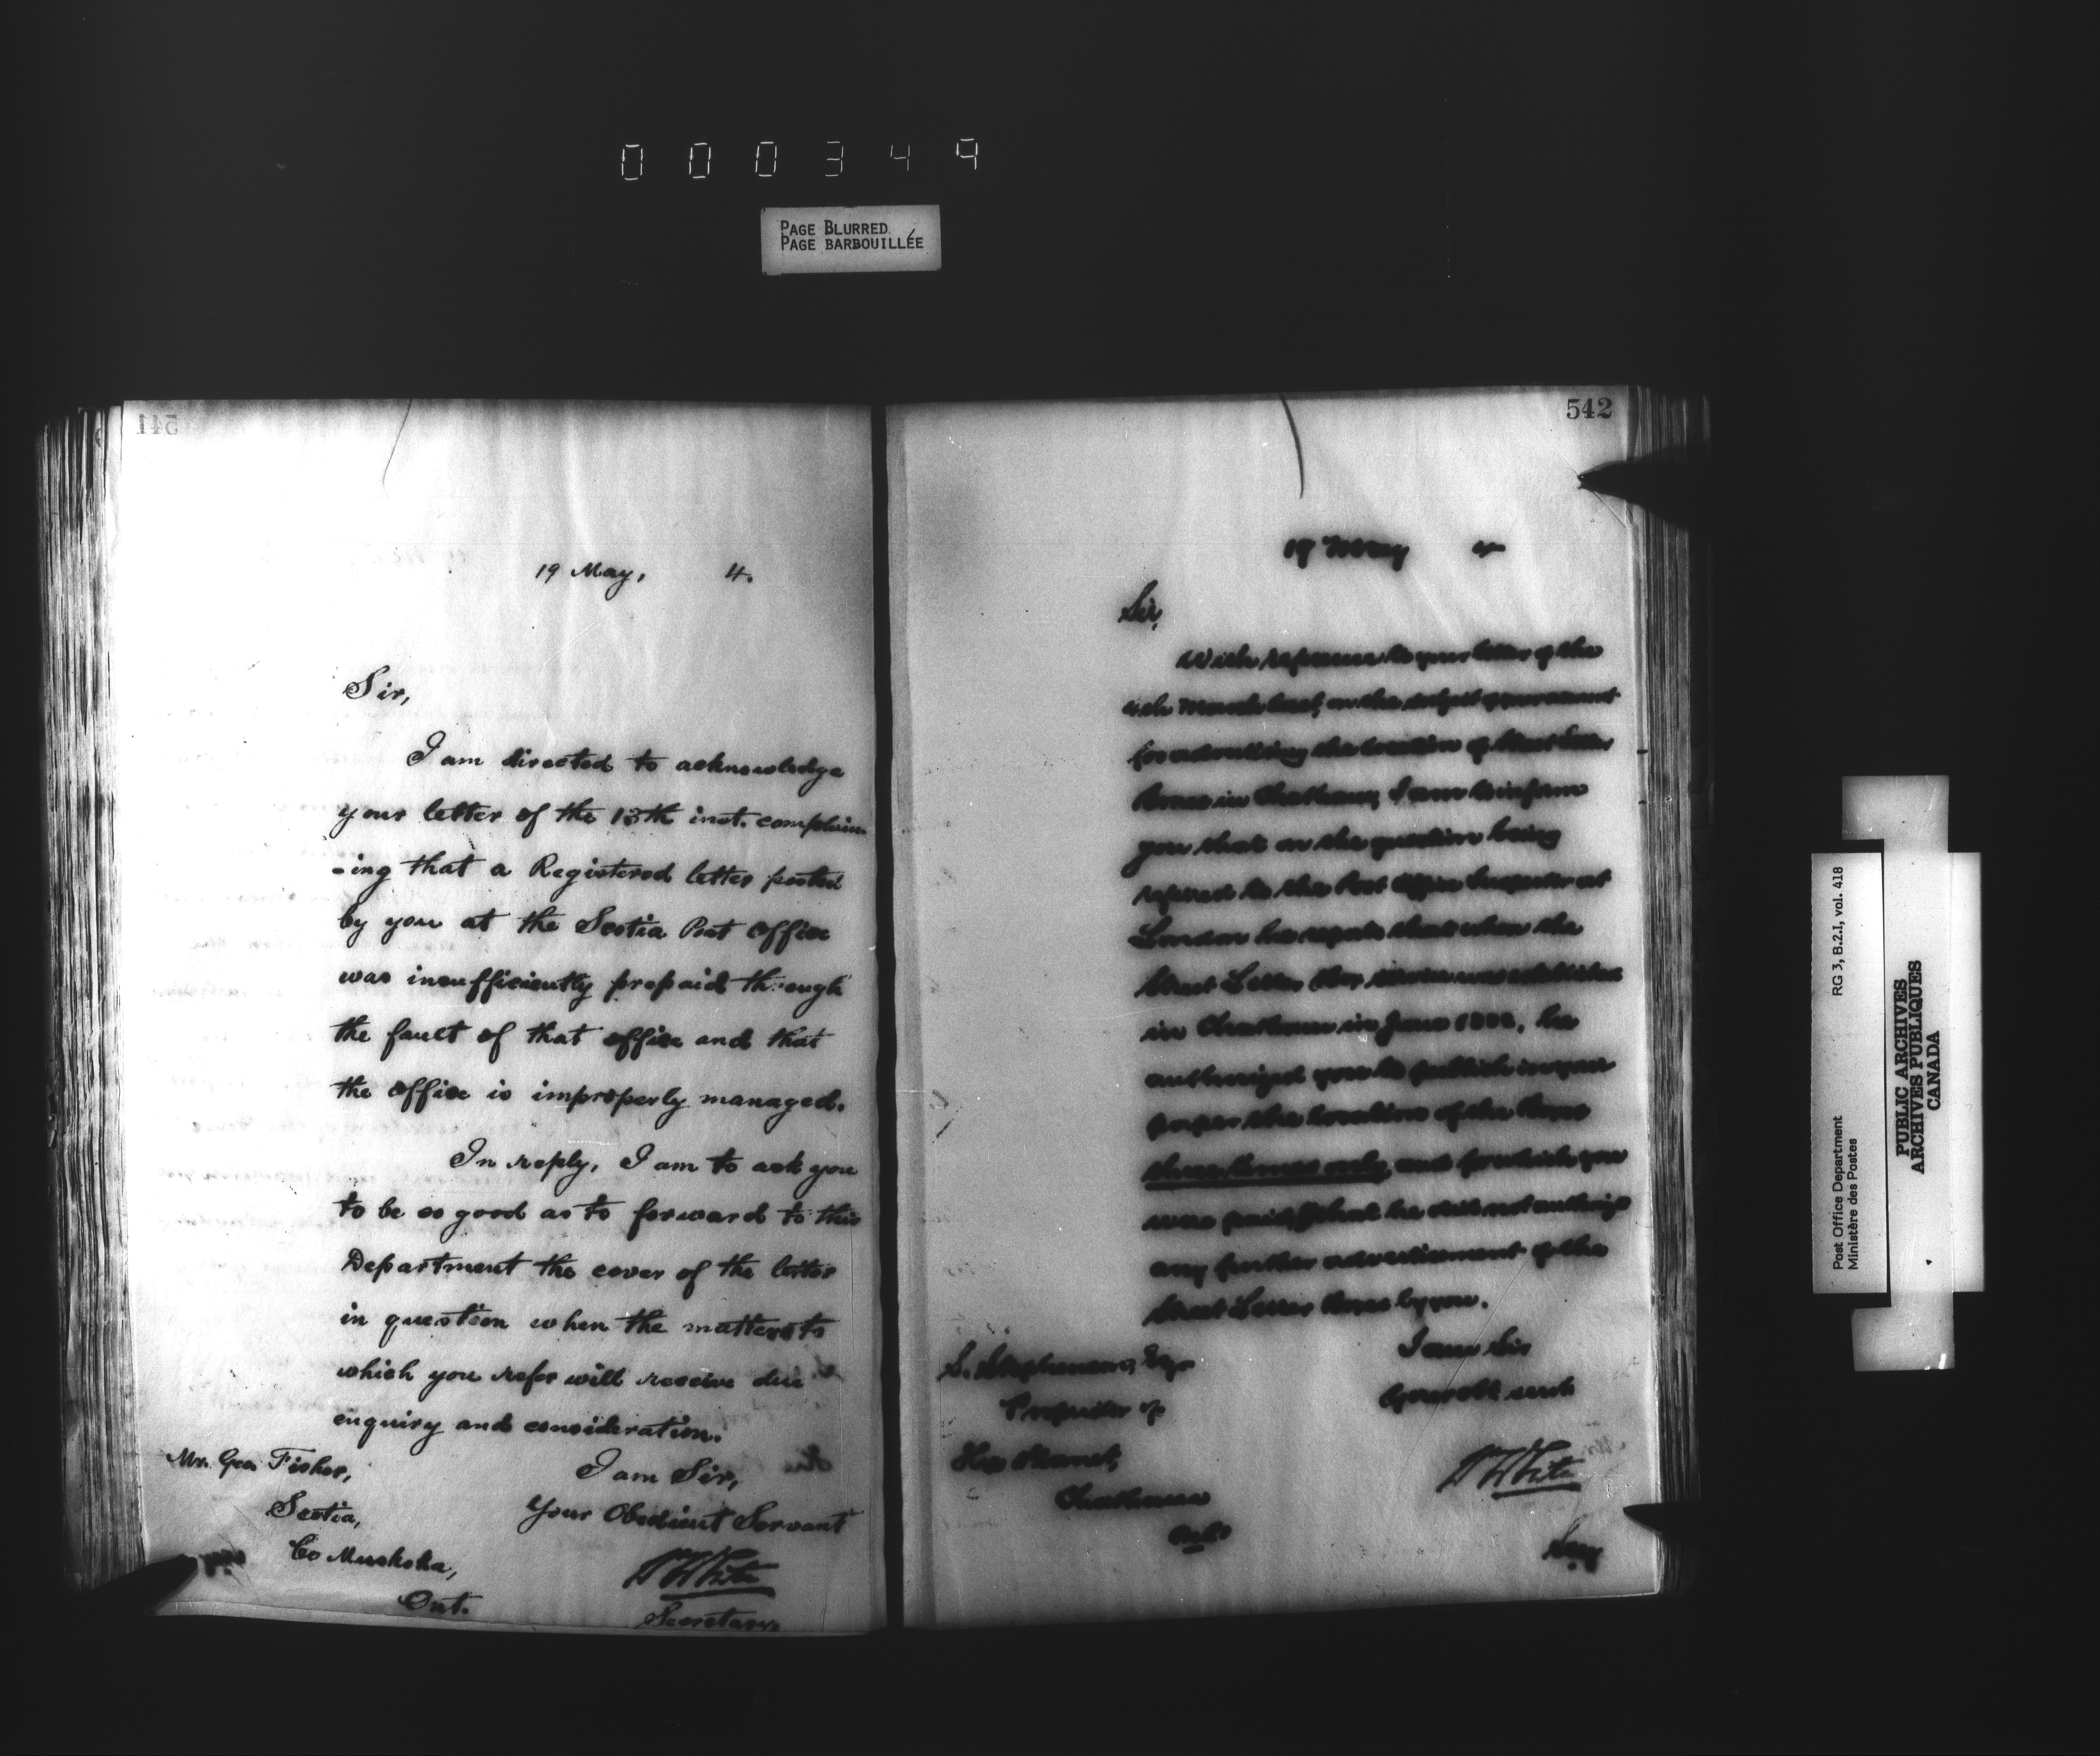 000349
PAGE BLURRED
PAGE BARBOUILLÉE
541
19 May, 4.
Sir,
I am directed to acknowledge
your letter of the 13th inst. complain
-ing that a Registered letter posted
by you at the Scotia Post Office
was insufficiently prepaid through
the fault of that office and that
the office is improperly managed.
In reply, I am to ask you
to be so good as to forward to this
Department the cover of the letter
in question when the matters to
which you refer will receive due
enquiry and consideration.
I am Sir,
Your Obedient Servant
WWhite
Secretary
Mr. Geo. Fisher,
Scotia,
Co Muskoka,
Ont.
542
19 May 4
Sir,
With reference to your letter of the
4th March last, on the subject of payment
for advertising the location of Street Letter
Boxes in Chatham, I am to inform
you that on the question being
referred to the Post Office Inspector at
London he reports that when the
Street Letter Box service was established
in Chatham in June, he
authorized you to publish in your
paper the location of the Boxes
three times only, and for which you
were paid, that he did not authorize
any further advertisement of the
Street Letter Boxes by you.
I am Sir
Your obt. servt
WWhite
Secy
S. Stephenson, Esq
Proprietor of
The Planet,
Chatham
Ont
Post Office Department
Ministère des Postes
RG 3, B.2.I, vol. 418
PUBLIC ARCHIVES
ARCHIVES PUBLIQUES
CANADA